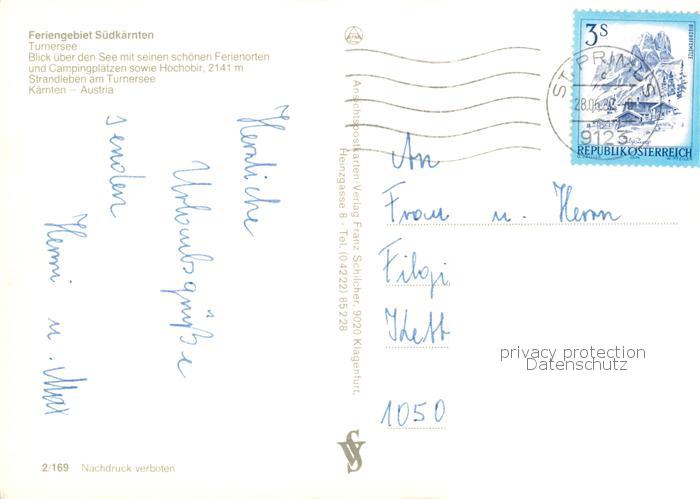 Feriengebiet Südkärnten
Turnersee
Blick über den See mit seinen schönen Ferienorten
und Campingplätzen sowie Hochobir, 2141 m
Strandleben am Turnersee
Kärnten – Austria
Herzliche
Urlaubsgrüße
senden
Hermi u. Max
2/169 Nachdruck verboten
Ansichtspostkarten-Verlag Franz Schilcher, 9020 Klagenfurt,
Heinzgasse 8 · Tel. (04222) 85228
3S
ST. PRIMUS
9123
REPUBLIK ÖSTERREICH
An
Frau u. Herrn
Filgi
Kett
1050
privacy protection
Datenschutz